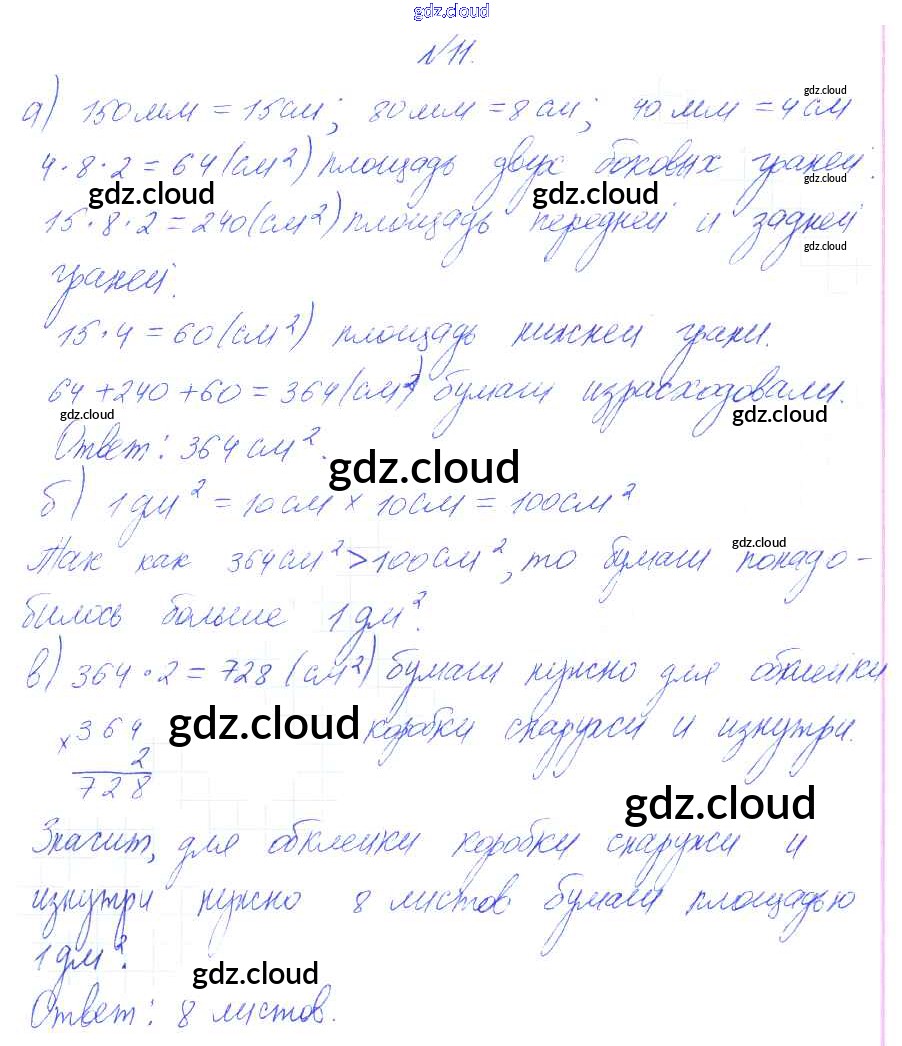 gdz.cloud
№11.
а) 150 мм = 15 см; 80 мм = 8 см; 40 мм = 4 см
gdz.cloud
4·8·2 = 64 (см²) площадь двух боковых граней.
gdz.cloud
gdz.cloud gdz.cloud
15·8·2 = 240 (см²) площадь передней и задней
gdz.cloud
граней.
15·4 = 60 (см²) площадь нижней грани.
64 + 240 + 60 = 364 (см²) бумаги израсходовали.
gdz.cloud gdz.cloud
Ответ: 364 см².
gdz.cloud
б) 1 дм² = 10 см × 10 см = 100 см²
gdz.cloud
Так как 364 см² > 100 см², то бумаги понадо-
билось больше 1 дм².
в) 364·2 = 728 (см²) бумаги нужно для обклейки
× 364 коробки снаружи и изнутри.
gdz.cloud
2
728
gdz.cloud
Значит, для обклейки коробки снаружи и
изнутри нужно 8 листов бумаги площадью
1 дм².
gdz.cloud
Ответ: 8 листов.